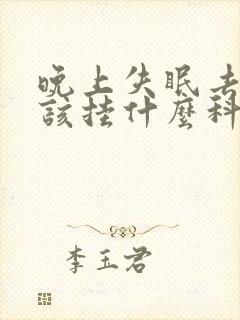 晚上失眠去
該挂什麼科
李玉君